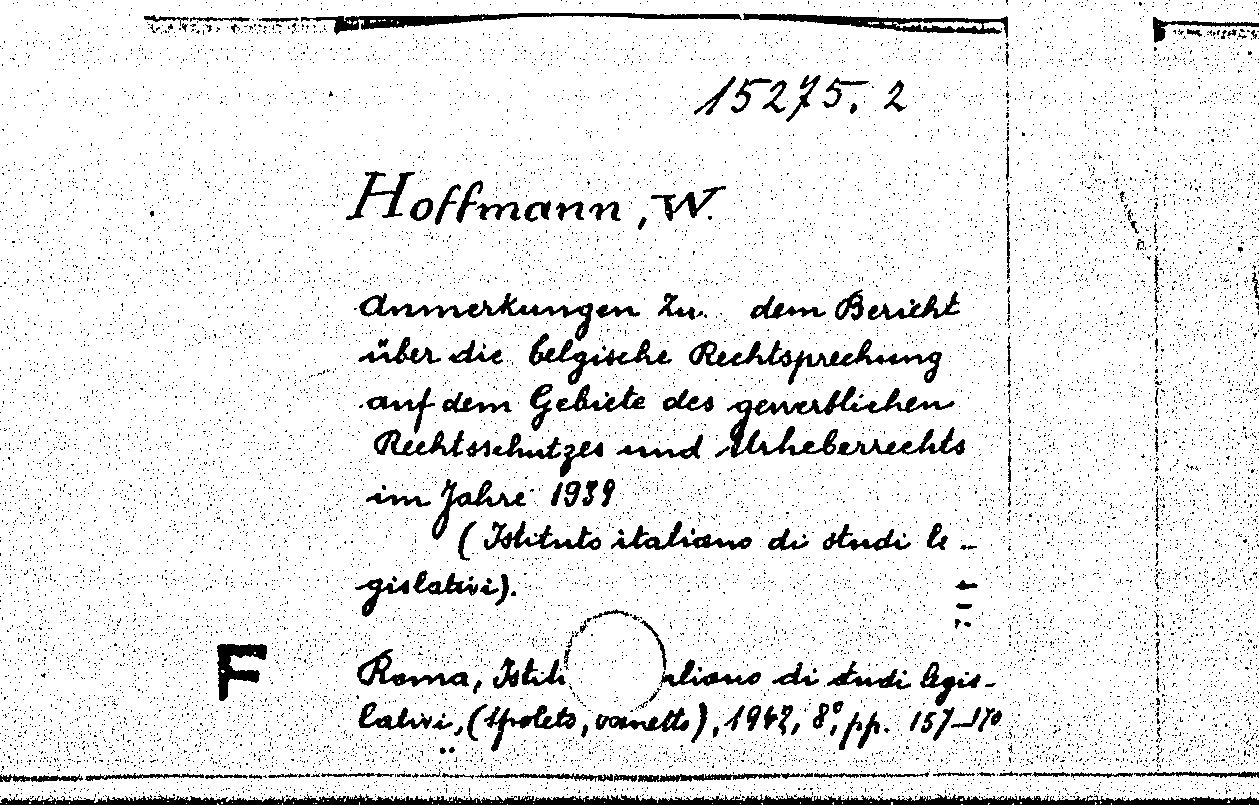 15275. 2
Hoffmann, W.
Anmerkungen zu dem Bericht
über die belgische Rechtsprechung
auf dem Gebiete des gewerblichen
Rechtsschutzes und Urheberrechts
im Jahre 1939
(Istituto italiano di studi le-
gislativi).
F
Roma, Istit aliano di studi legis-
lativi, (Spoleto, Panetto), 1942, 8°, pp. 157-170